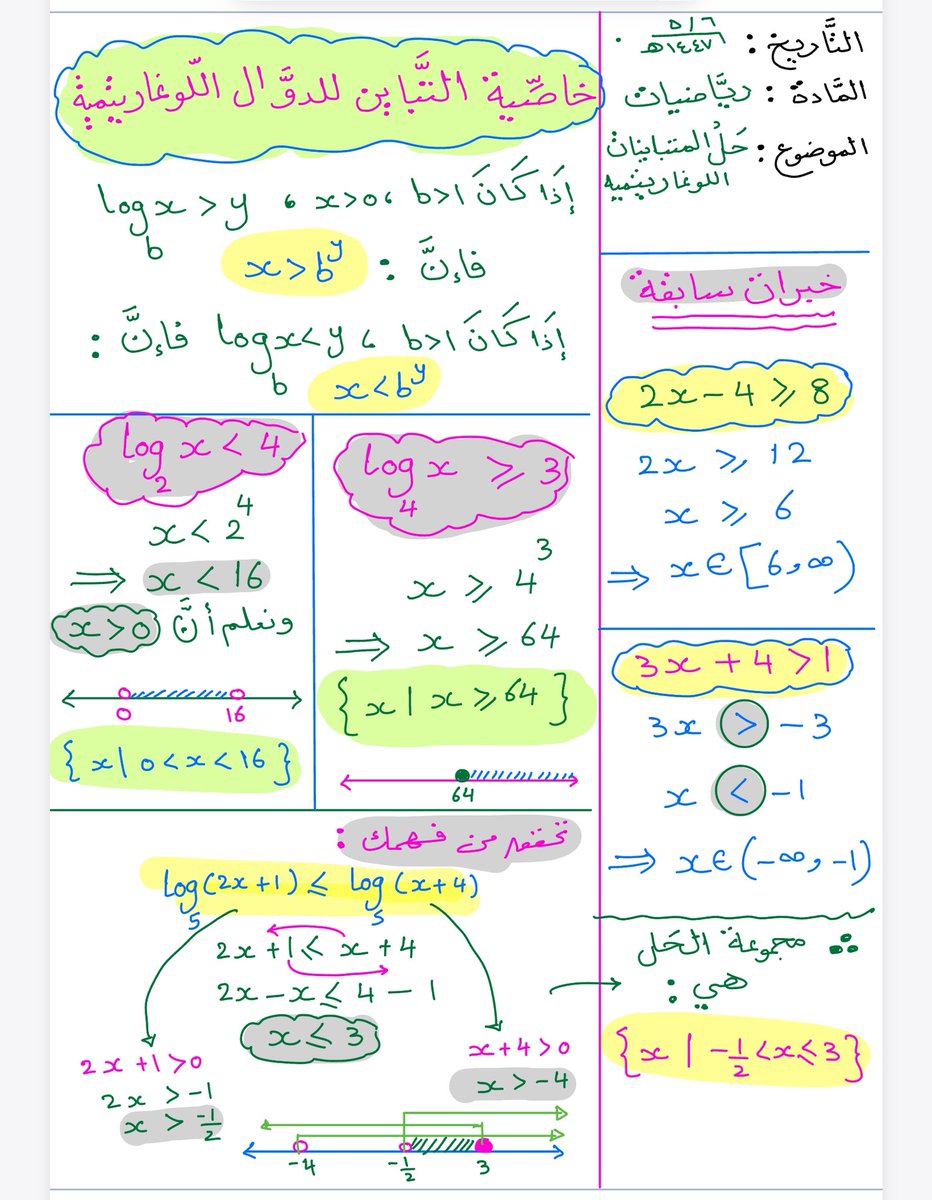 التَّاريخ : ٦ / ٥ / ١٤٤٧هـ
المَّادة : ريَّاضيات
الموضوع : حَلُّ المتباينات اللوغاريثمية
خاصِّية التَّباين للدوَّال اللّوغاريثمية
إذَا كَانَ b>1 ، x>0 ، log_b x > y
فإنَّ : x > b^y
إذَا كَانَ b>1 ، log_b x < y فإنَّ :
x < b^y
خبرات سابقة
2x - 4 ≥ 8
2x ≥ 12
x ≥ 6
⇒ x ∈ [6, ∞)
3x + 4 > 1
3x > -3
x < -1
⇒ x ∈ (-∞, -1)
log_4 x ≥ 3
x ≥ 4^3
⇒ x ≥ 64
{ x | x ≥ 64 }
64
log_2 x < 4
x < 2^4
⇒ x < 16
ونعلم أنَّ x > 0
0 16
{ x | 0 < x < 16 }
تحقق من فهمك :
log_5 (2x+1) ≤ log_5 (x+4)
2x + 1 ≤ x + 4
2x - x ≤ 4 - 1
x ≤ 3
x + 4 > 0
x > -4
2x + 1 > 0
2x > -1
x > -1/2
-4 -1/2 3
∴ مجموعة الحَل
هي :
{ x | -1/2 < x ≤ 3 }